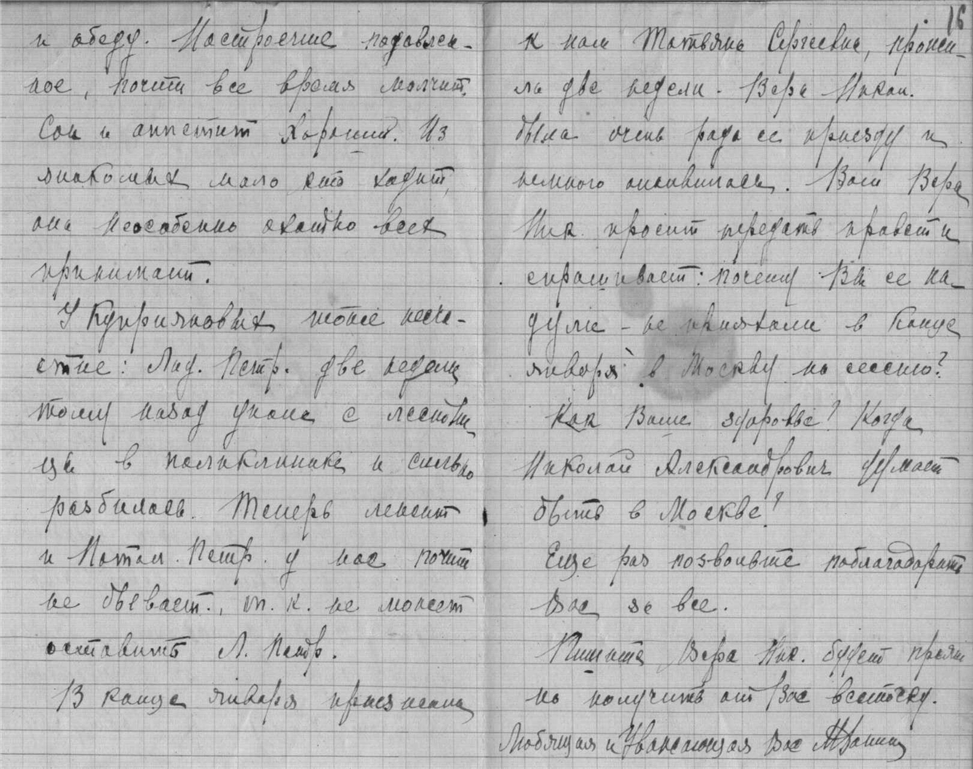 к обеду. Настроение подавлен-
ное, почти все время молчит.
Сон и аппетит хороший. Из
знакомых мало кто ходит,
она неособенно охотно всех
принимает.
У Куприяновых тоже несча-
стие: Лид. Петр. две недели
тому назад упала с лестни-
цы в поликлинике и сильно
разбилась. Теперь лежит
и Натал. Петр. у нас почти
не бывает, т. к. не может
оставить Л. Петр.
В конце января приезжала
16
к нам Татьяна Сергеевна, прожи-
ла две недели. Вера Никол.
была очень рада ее приезду и
немного оживилась. Вам Вера
Ник. просит передать привет и
спрашивает: почему Вы ее на-
дули – не приехали в конце
января в Москву на сессию?
Как Ваше здоровье? Когда
Николай Александрович думает
быть в Москве?
Еще раз позвольте поблагодарить
Вас за все.
Пишите, Вера Ник. будет
но получить от Вас весточку.
Любящая и Уважающая Вас